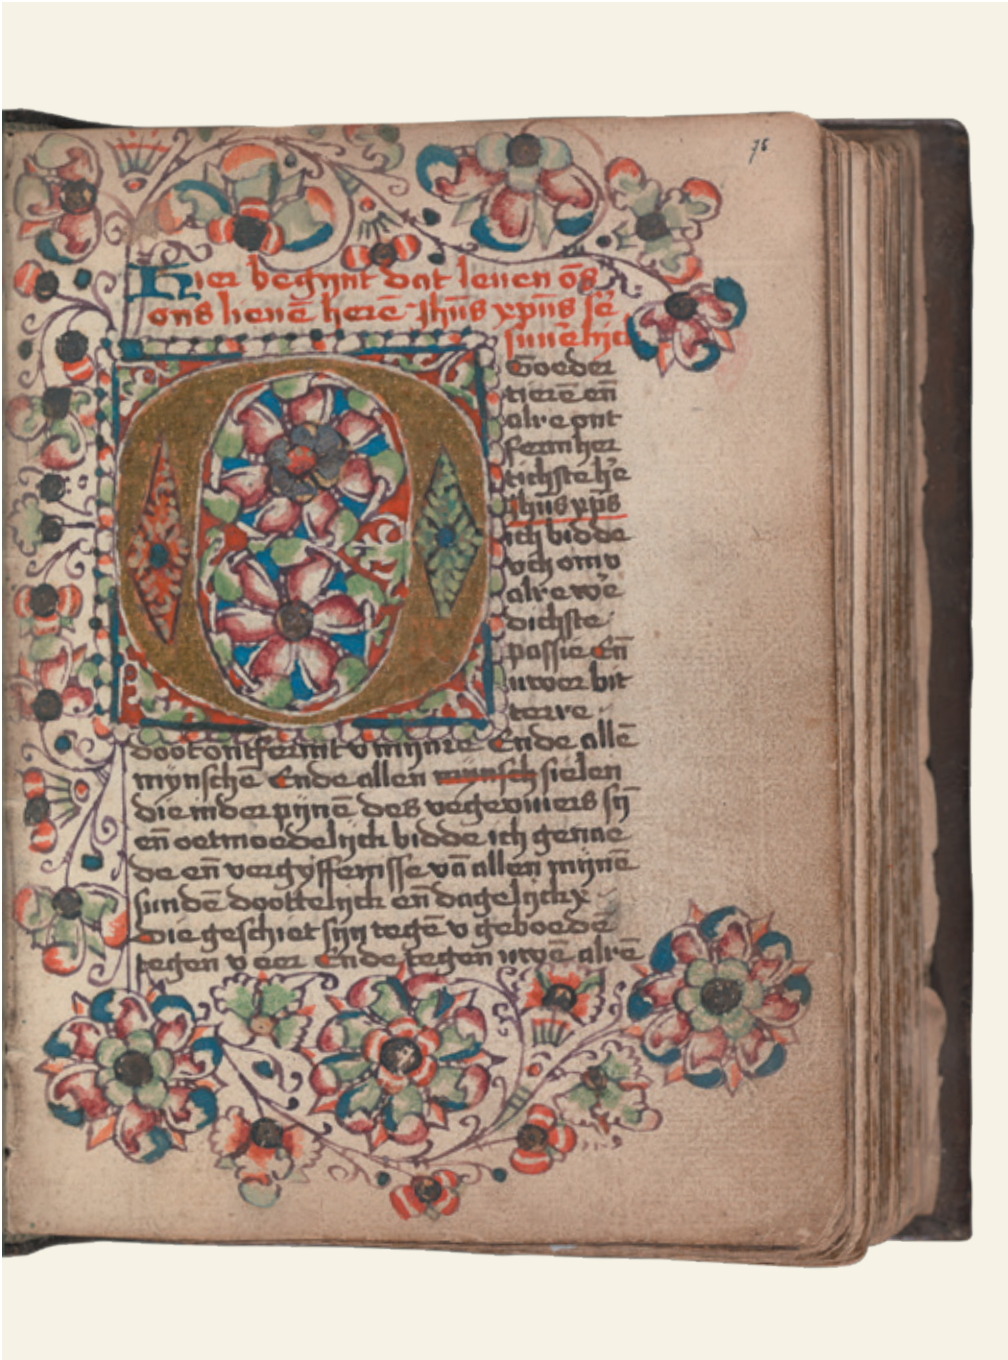 75
Hier begynt dat leuen ōs
ons lieuē herē Jhūs xpūs
Goeder
tierē eñ
alre ont
fermher
tichste he
Jhūs xp̄s
ich bidde
vch om v
alre we
dichste
passie Eñ
uwer bit
terre
doot ontfermt v mijnre Ende allē
mynschē Ende allen mynsch sielen
die in der pijnē des vegeviuers sij
eñ oetmoedelijch bidde ich genae
de eñ vergyffenisse vā allen mijnē
sundē doottelijch eñ dagelijchx
Die geschiet sijn tegē v geboedē
tegen v eer Ende tegen uwē alrē